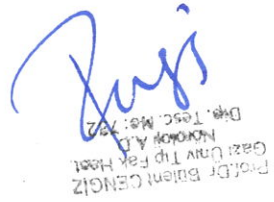 Prof.Dr Bülent CENGİZ
Gazi Üniv Tıp Fak Hast.
Noroloji A.D.
Dip. Tesc. No: 732